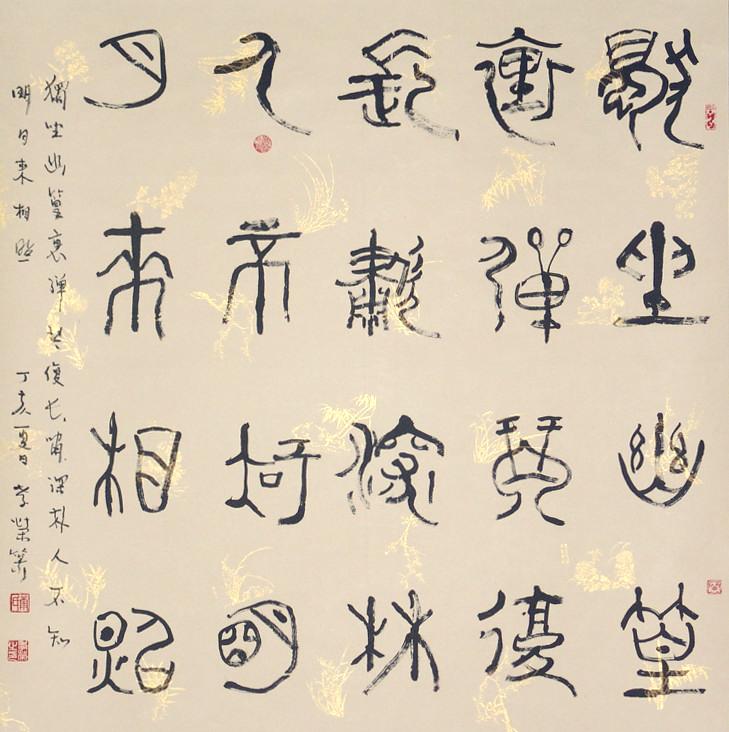 獨坐幽篁
裏彈琴復
長嘯深林
人不知明
月來相照
獨坐幽篁裏彈琴復長嘯深林人不知
明月來相照 丁亥夏日